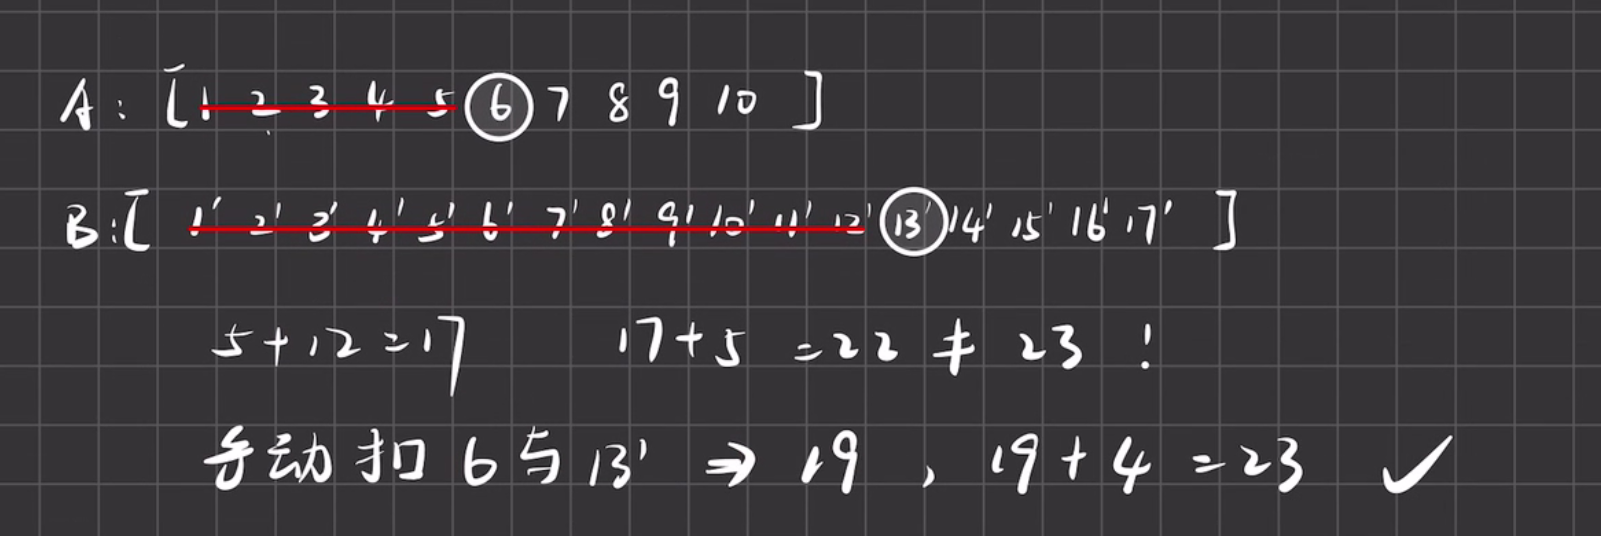 A: [1 2 3 4 5 6 7 8 9 10 ]
B:[ 1' 2' 3' 4' 5' 6' 7' 8' 9' 10' 11' 12' 13' 14' 15' 16' 17' ]
5+12=17 17+5 =22 ≠ 23 !
手动扣 6与 13' ⇒ 19 , 19+4 =23 ✓